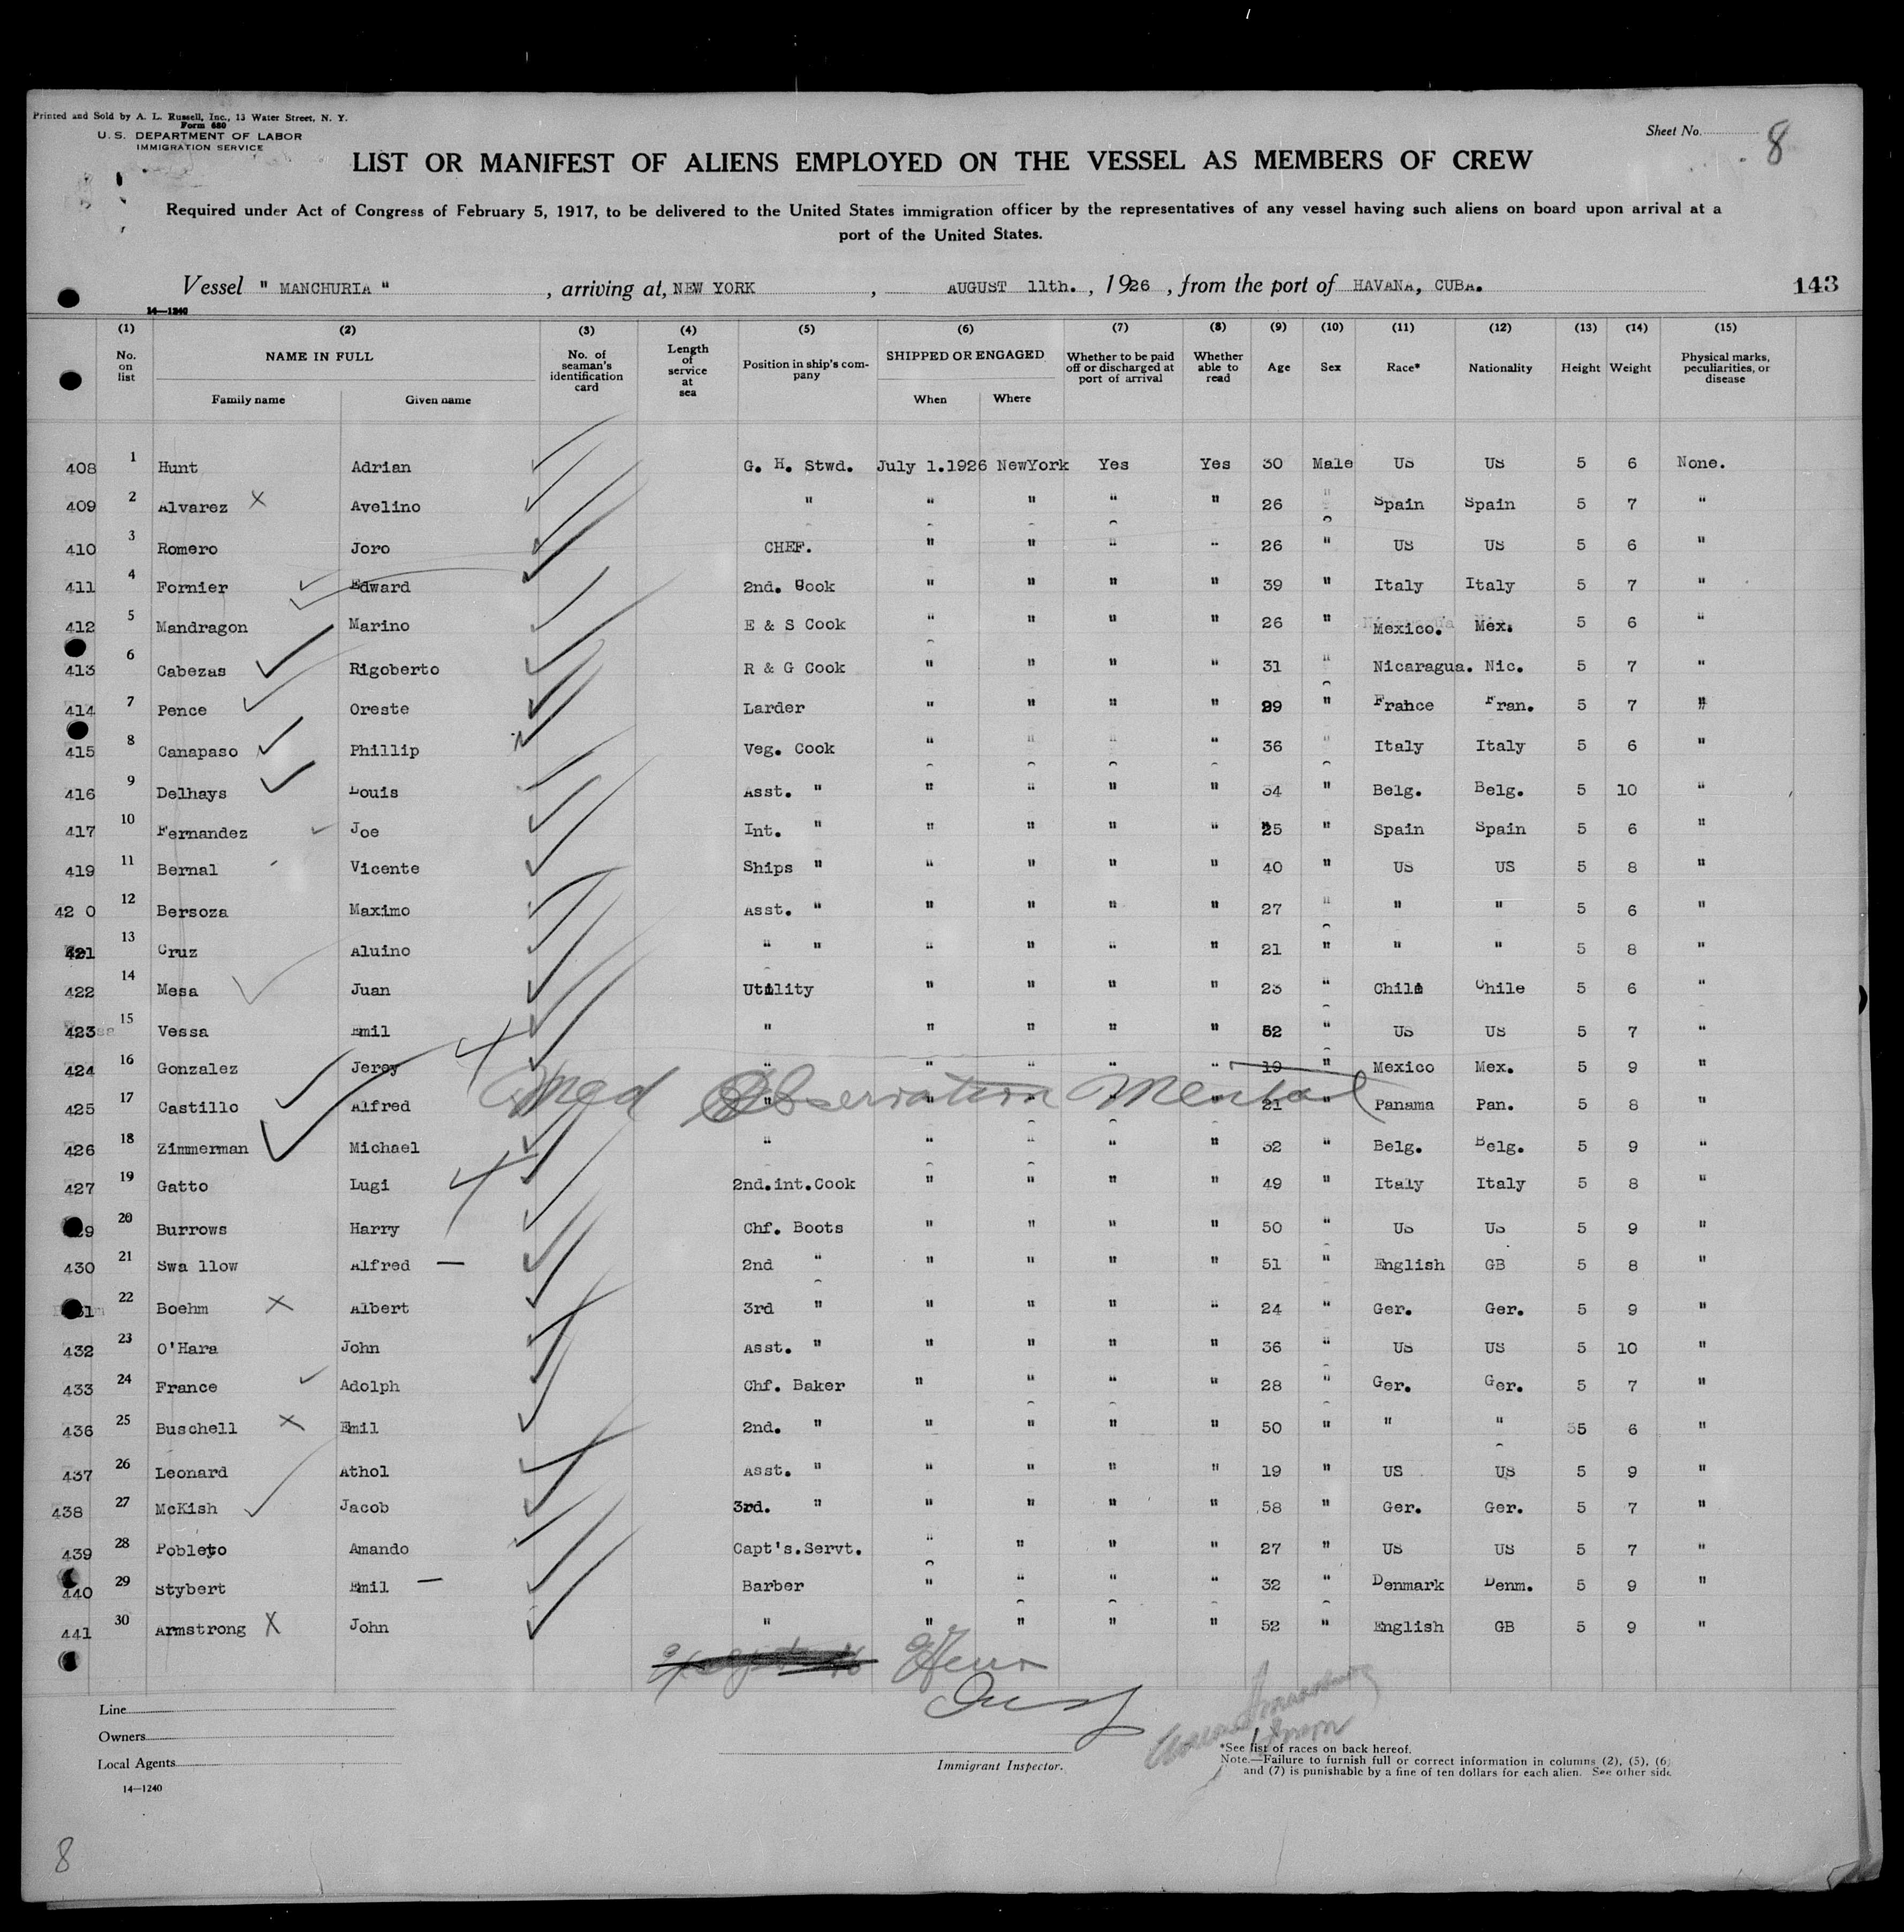 Printed and Sold by A. L. Russell, Inc., 13 Water Street, N. Y.
Form 680
U. S. DEPARTMENT OF LABOR
IMMIGRATION SERVICE
Sheet No. 8
LIST OR MANIFEST OF ALIENS EMPLOYED ON THE VESSEL AS MEMBERS OF CREW
Required under Act of Congress of February 5, 1917, to be delivered to the United States immigration officer by the representatives of any vessel having such aliens on board upon arrival at a
port of the United States.
Vessel " MANCHURIA " , arriving at, NEW YORK , AUGUST 11th. , 1926 , from the port of HAVANA, CUBA. 143
14—1240
(1) (2) (3) (4) (5) (6) (7) (8) (9) (10) (11) (12) (13) (14) (15)
No. on list NAME IN FULL No. of seaman's identification card Length of service at sea Position in ship's company SHIPPED OR ENGAGED Whether to be paid off or discharged at port of arrival Whether able to read Age Sex Race* Nationality Height Weight Physical marks, peculiarities, or disease
Family name Given name When Where
408 1 Hunt Adrian G. H. Stwd. July 1.1926 NewYork Yes Yes 30 Male US US 5 6 None.
409 2 Alvarez X Avelino " " " " " 26 " Spain Spain 5 7 "
410 3 Romero Joro CHEF. " " " " 26 " US US 5 6 "
411 4 Fornier Edward 2nd. Cook " " " " 39 " Italy Italy 5 7 "
412 5 Mandragon Marino E & S Cook " " " " 26 " Mexico. Mex. 5 6 "
413 6 Cabezas Rigoberto R & G Cook " " " " 31 " Nicaragua. Nic. 5 7 "
414 7 Pence Oreste Larder " " " " 29 " France Fran. 5 7 "
415 8 Canapaso Phillip Veg. Cook " " " " 36 " Italy Italy 5 6 "
416 9 Delhays Louis Asst. " " " " " 34 " Belg. Belg. 5 10 "
417 10 Fernandez Joe Int. " " " " " 25 " Spain Spain 5 6 "
419 11 Bernal Vicente Ships " " " " " 40 " US US 5 8 "
42 0 12 Bersoza Maximo Asst. " " " " " 27 " " " 5 6 "
421 13 Cruz Aluino " " " " " " 21 " " " 5 8 "
422 14 Mesa Juan Utility " " " " 23 " Chile Chile 5 6 "
423 15 Vessa Emil " " " " " 52 " US US 5 7 "
424 16 Gonzalez Jerey " " " " " 19 " Mexico Mex. 5 9 "
Med Observation Mental
425 17 Castillo Alfred " " " " " 21 " Panama Pan. 5 8 "
426 18 Zimmerman Michael " " " " " 32 " Belg. Belg. 5 9 "
427 19 Gatto Lugi 2nd.int.Cook " " " " 49 " Italy Italy 5 8 "
9 20 Burrows Harry Chf. Boots " " " " 50 " US US 5 9 "
430 21 Swa llow Alfred — 2nd " " " " " 51 " English GB 5 8 "
31 22 Boehm X Albert 3rd " " " " " 24 " Ger. Ger. 5 9 "
432 23 O'Hara John Asst. " " " " " 36 " US US 5 10 "
433 24 France Adolph Chf. Baker " " " " 28 " Ger. Ger. 5 7 "
436 25 Buschell X Emil 2nd. " " " " " 50 " " " 5 6 "
437 26 Leonard Athol Asst. " " " " " 19 " US US 5 9 "
438 27 McKish Jacob 3rd. " " " " " 58 " Ger. Ger. 5 7 "
439 28 Pobleto Amando Capt's.Servt. " " " " 27 " US US 5 7 "
440 29 Stybert Emil — Barber " " " " 32 " Denmark Denm. 5 9 "
441 30 Armstrong X John " " " " " 52 " English GB 5 9 "
Line
Owners
Local Agents
14—1240
Immigrant Inspector.
*See list of races on back hereof.
Note.—Failure to furnish full or correct information in columns (2), (5), (6)
and (7) is punishable by a fine of ten dollars for each alien. See other side
8